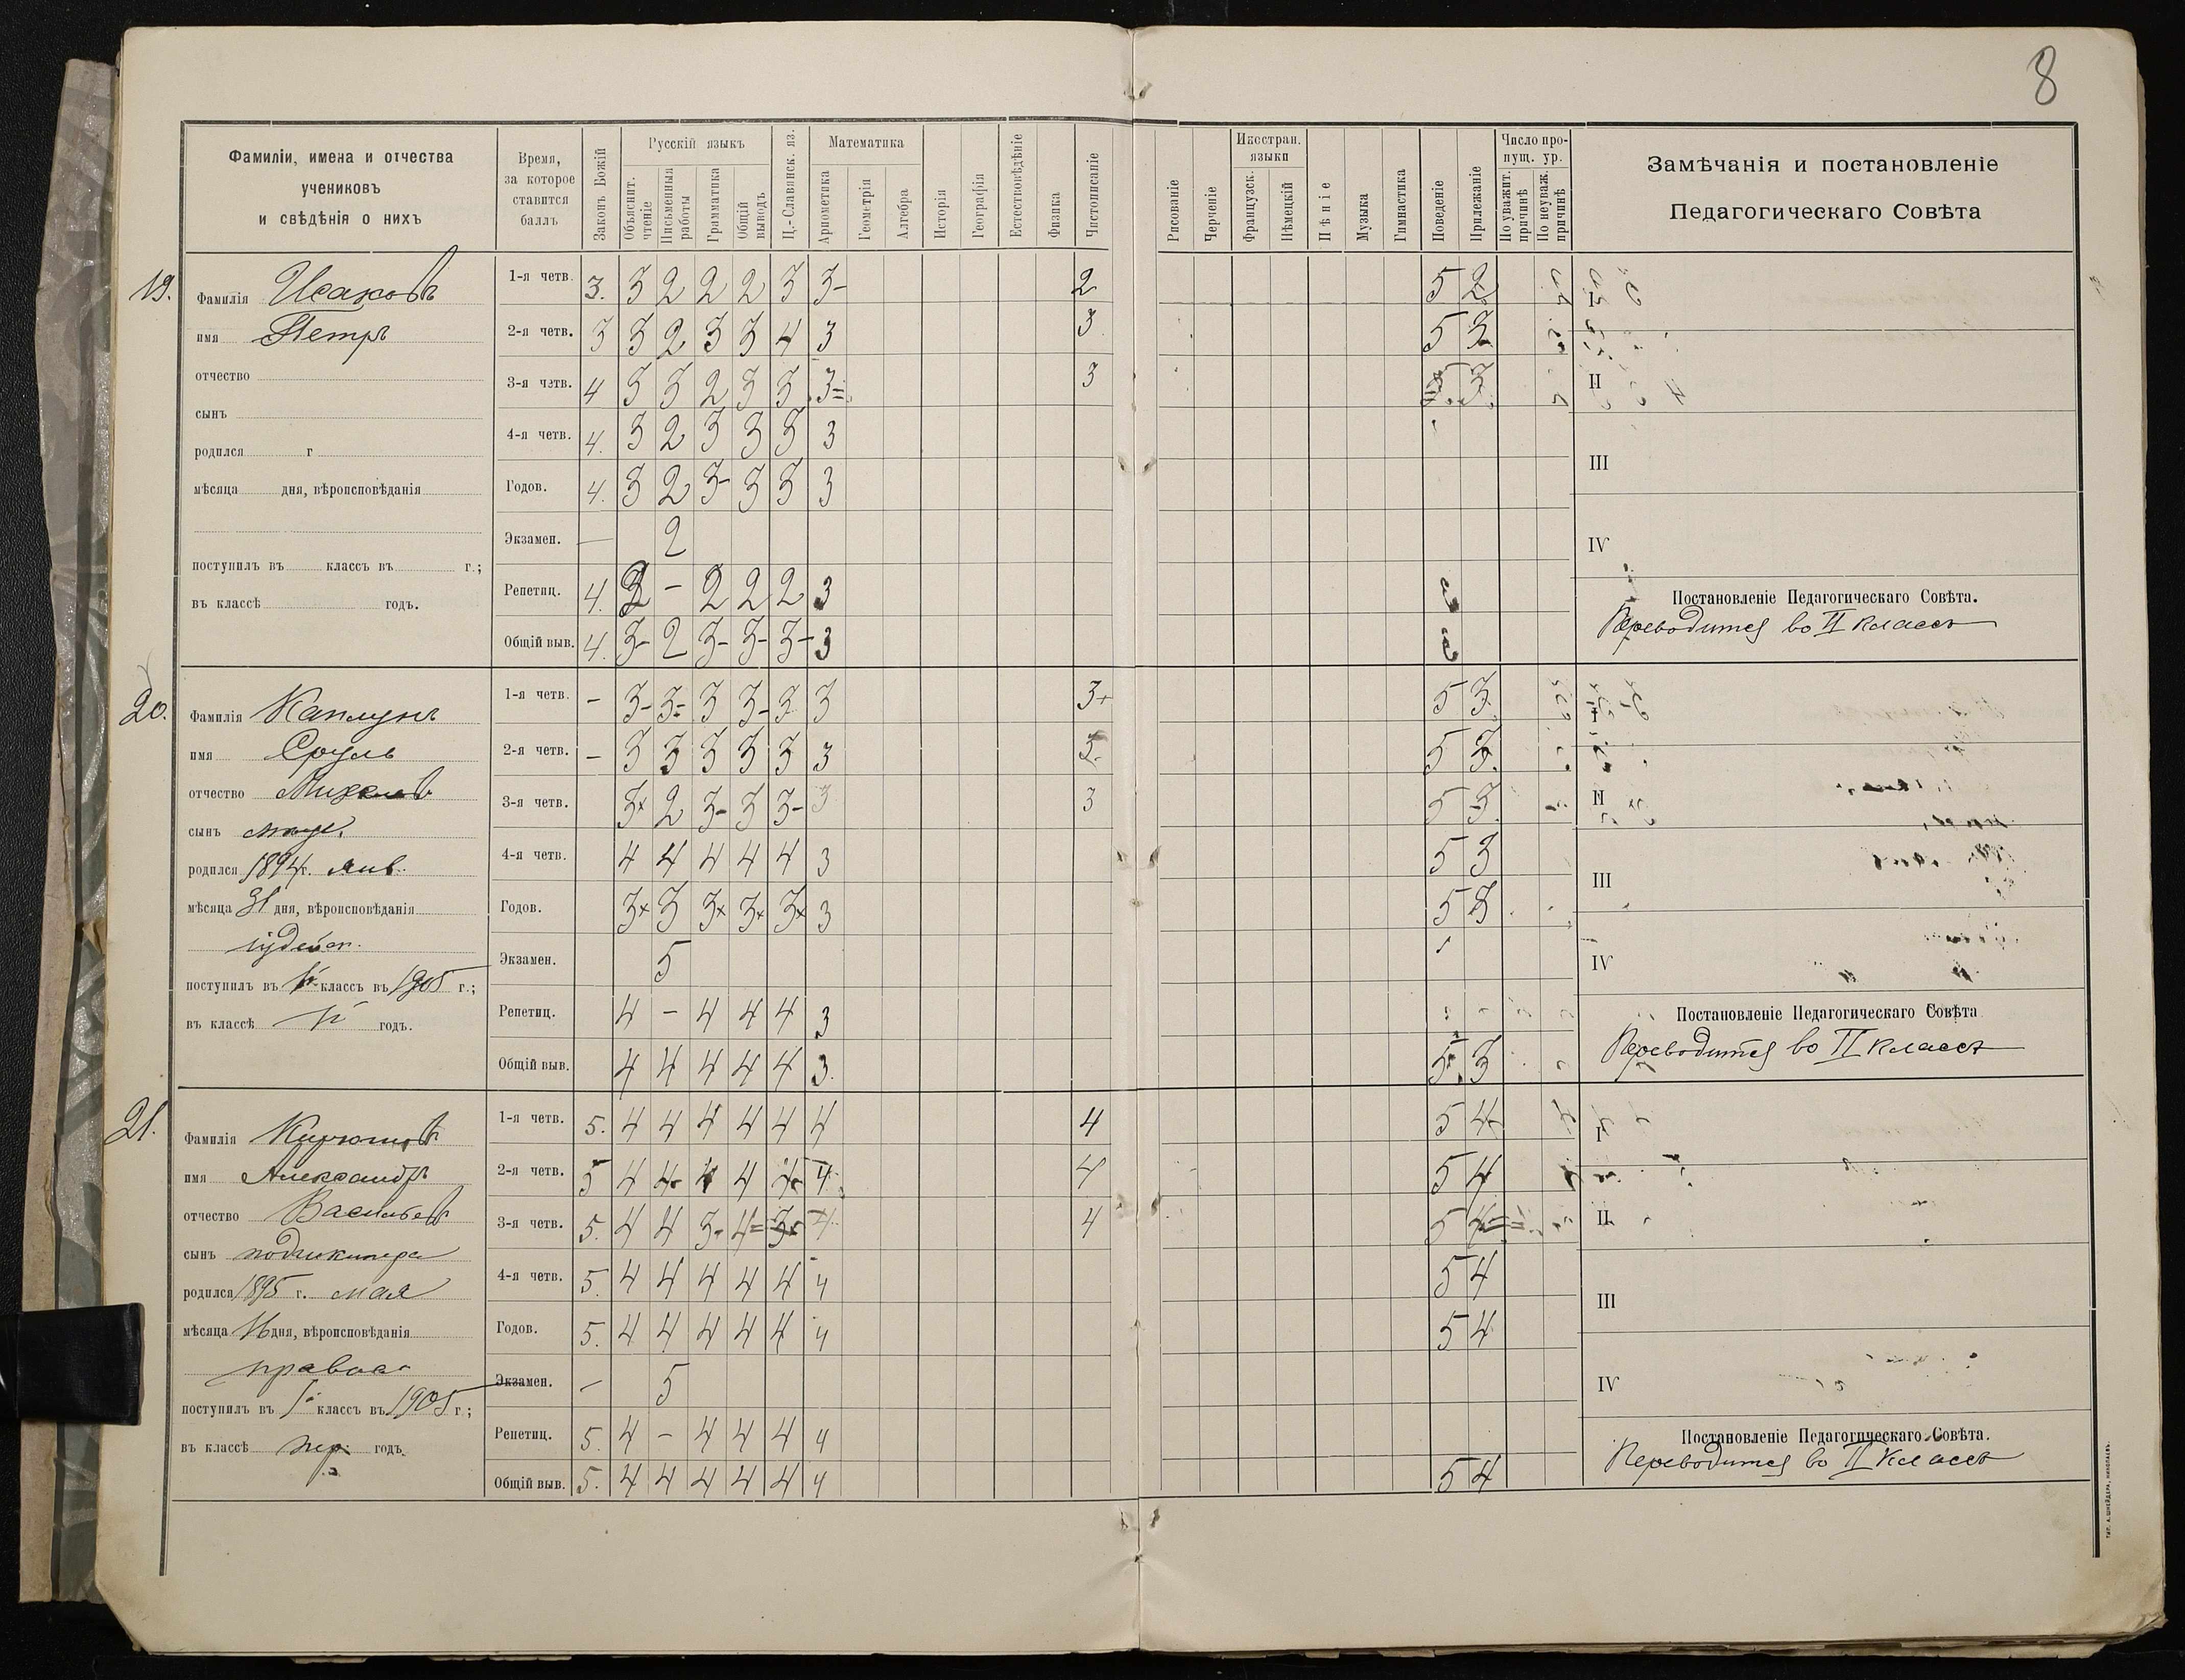 8
Фамиліи, имена и отчества
учениковъ
и свѣдѣнія о нихъ
Время,
за которое
ставится
баллъ
Законъ Божій
Русскій языкъ
Объяснит. чтеніе
Письменныя работы
Грамматика
Общій выводъ
Ц.-Славянск. яз.
Математика
Ариѳметика
Геометрія
Алгебра
Исторія
Географія
Естествовѣдѣніе
Физика
Чистописаніе
Рисованіе
Черченіе
Иностран. языки
Французск.
Нѣмецкій
Пѣніе
Музыка
Гимнастика
Поведеніе
Прилежаніе
Число пропущ. ур.
По уважит. причинѣ
По неуваж. причинѣ
Замѣчанія и постановленіе
Педагогическаго Совѣта
19.
Фамилія Исаковъ
имя Петръ
отчество
сынъ
родился г
мѣсяца дня, вѣроисповѣданія
поступилъ въ классъ въ г.;
въ классѣ годъ.
1-я четв. 3. 3 2 2 2 3 3- 2 5 2
2-я четв. 3 3 2 3 3 4 3 3 5 3
3-я четв. 4 3 3 2 3 3 3= 3 5 3
4-я четв. 4. 3 2 3 3 3 3
Годов. 4. 3 2 3- 3 3 3
Экзамен. — 2
Репетиц. 4. 2 - 2 2 2 3
Общій выв. 4. 3- 2 3- 3- 3- 3
I
II
III
IV
Постановленіе Педагогическаго Совѣта.
Переводится во II классъ
20.
Фамилія Каплунъ
имя Сруль
отчество
сынъ
родился 1894 г. янв.
мѣсяца 31 дня, вѣроисповѣданія
іудейск.
поступилъ въ классъ въ 1905 г.;
въ классѣ годъ.
1-я четв. - 3- 3= 3 3- 3 3 3+ 5 3
2-я четв. - 3 3 3 3 3 3 5 3
3-я четв. 3+ 2 3- 3 3- 3 3 5 3
4-я четв. 4 4 4 4 4 3 5 3
Годов. 3+ 3 3+ 3+ 3+ 3 5 3
Экзамен. 5
Репетиц. 4 - 4 4 4 3
Общій выв. 4 4 4 4 4 3. 5 3
I
II
III
IV
Постановленіе Педагогическаго Совѣта
Переводится во II классъ
21.
Фамилія
имя Александръ
отчество Васильев
сынъ подшкипера
родился 1895 г. мая
мѣсяца 16 дня, вѣроисповѣданія
правос
поступилъ въ I классъ въ 1905 г.;
въ классѣ пер. годъ.
1-я четв. 5. 4 4 4 4 4 4 4 5 4
2-я четв. 5 4 4 4 4 4 4 4 5 4
3-я четв. 5. 4 4 3- 4= 3 4 4 5 4=
4-я четв. 5. 4 4 4 4 4 4 5 4
Годов. 5. 4 4 4 4 4 4 5 4
Экзамен. — 5
Репетиц. 5. 4 - 4 4 4 4
Общій выв. 5. 4 4 4 4 4 4 5 4
I
II
III
IV
Постановленіе Педагогическаго Совѣта.
Переводится во II классъ
ТИП. А. ШНЕЙДЕРА, НИКОЛАЕВЪ.